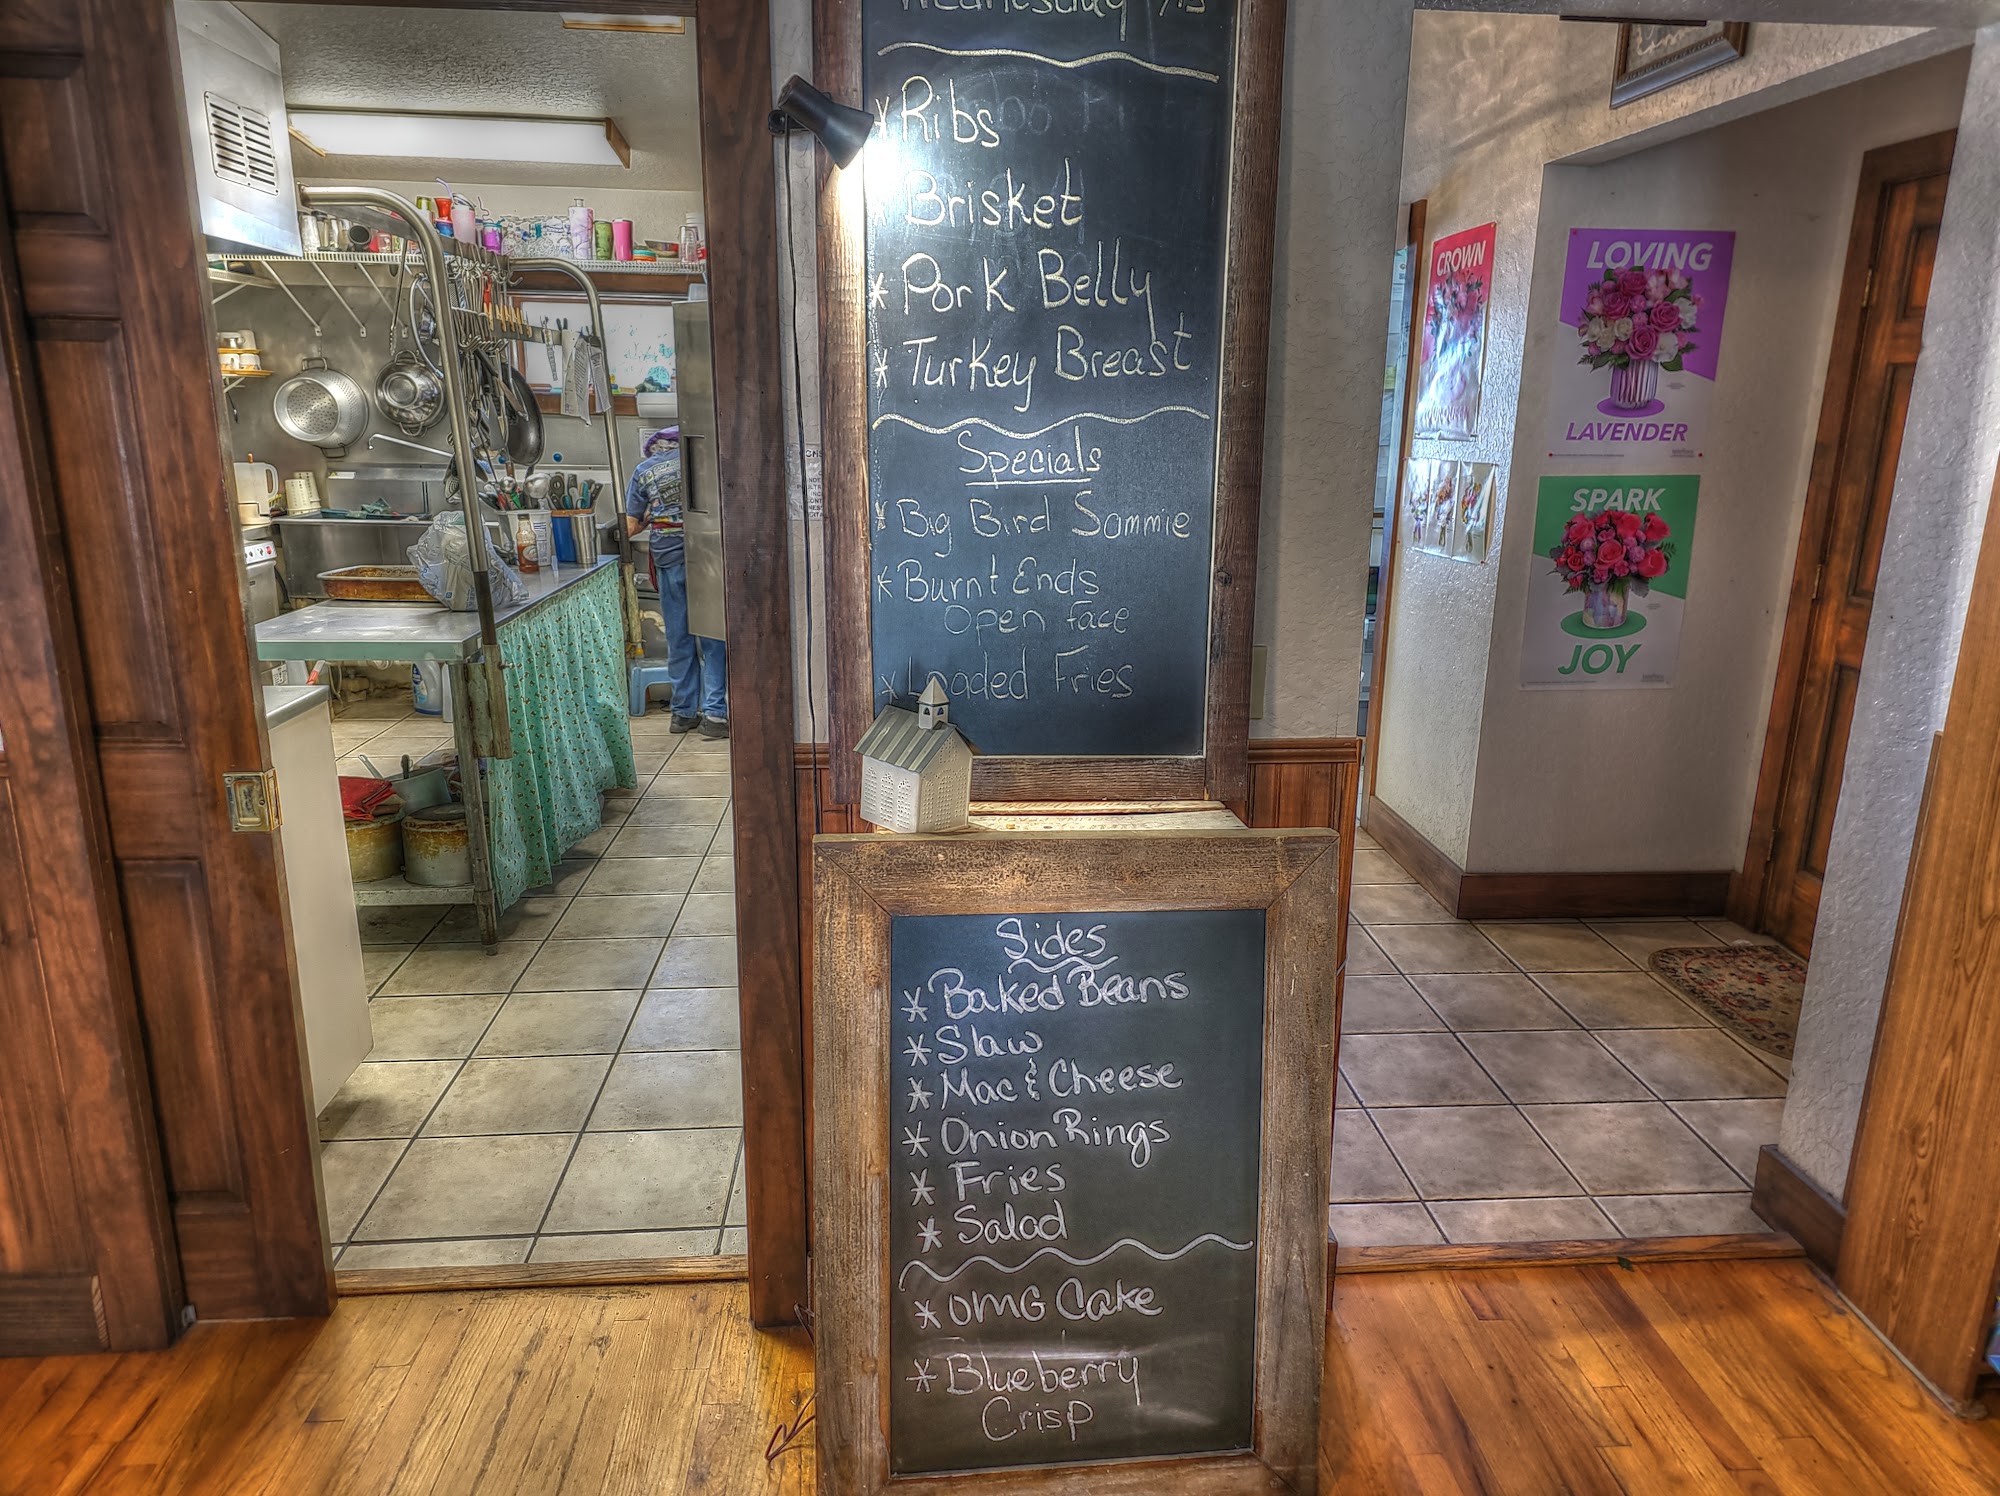 Wednesday
* Ribs
* Brisket
* Pork Belly
* Turkey Breast
Specials
* Big Bird Sammie
* Burnt Ends
Open Face
* Loaded Fries
Sides
* Baked Beans
* Slaw
* Mac & Cheese
* Onion Rings
* Fries
* Salad
* OMG Cake
* Blueberry
Crisp
CROWN
LOVING
LAVENDER
SPARK
JOY